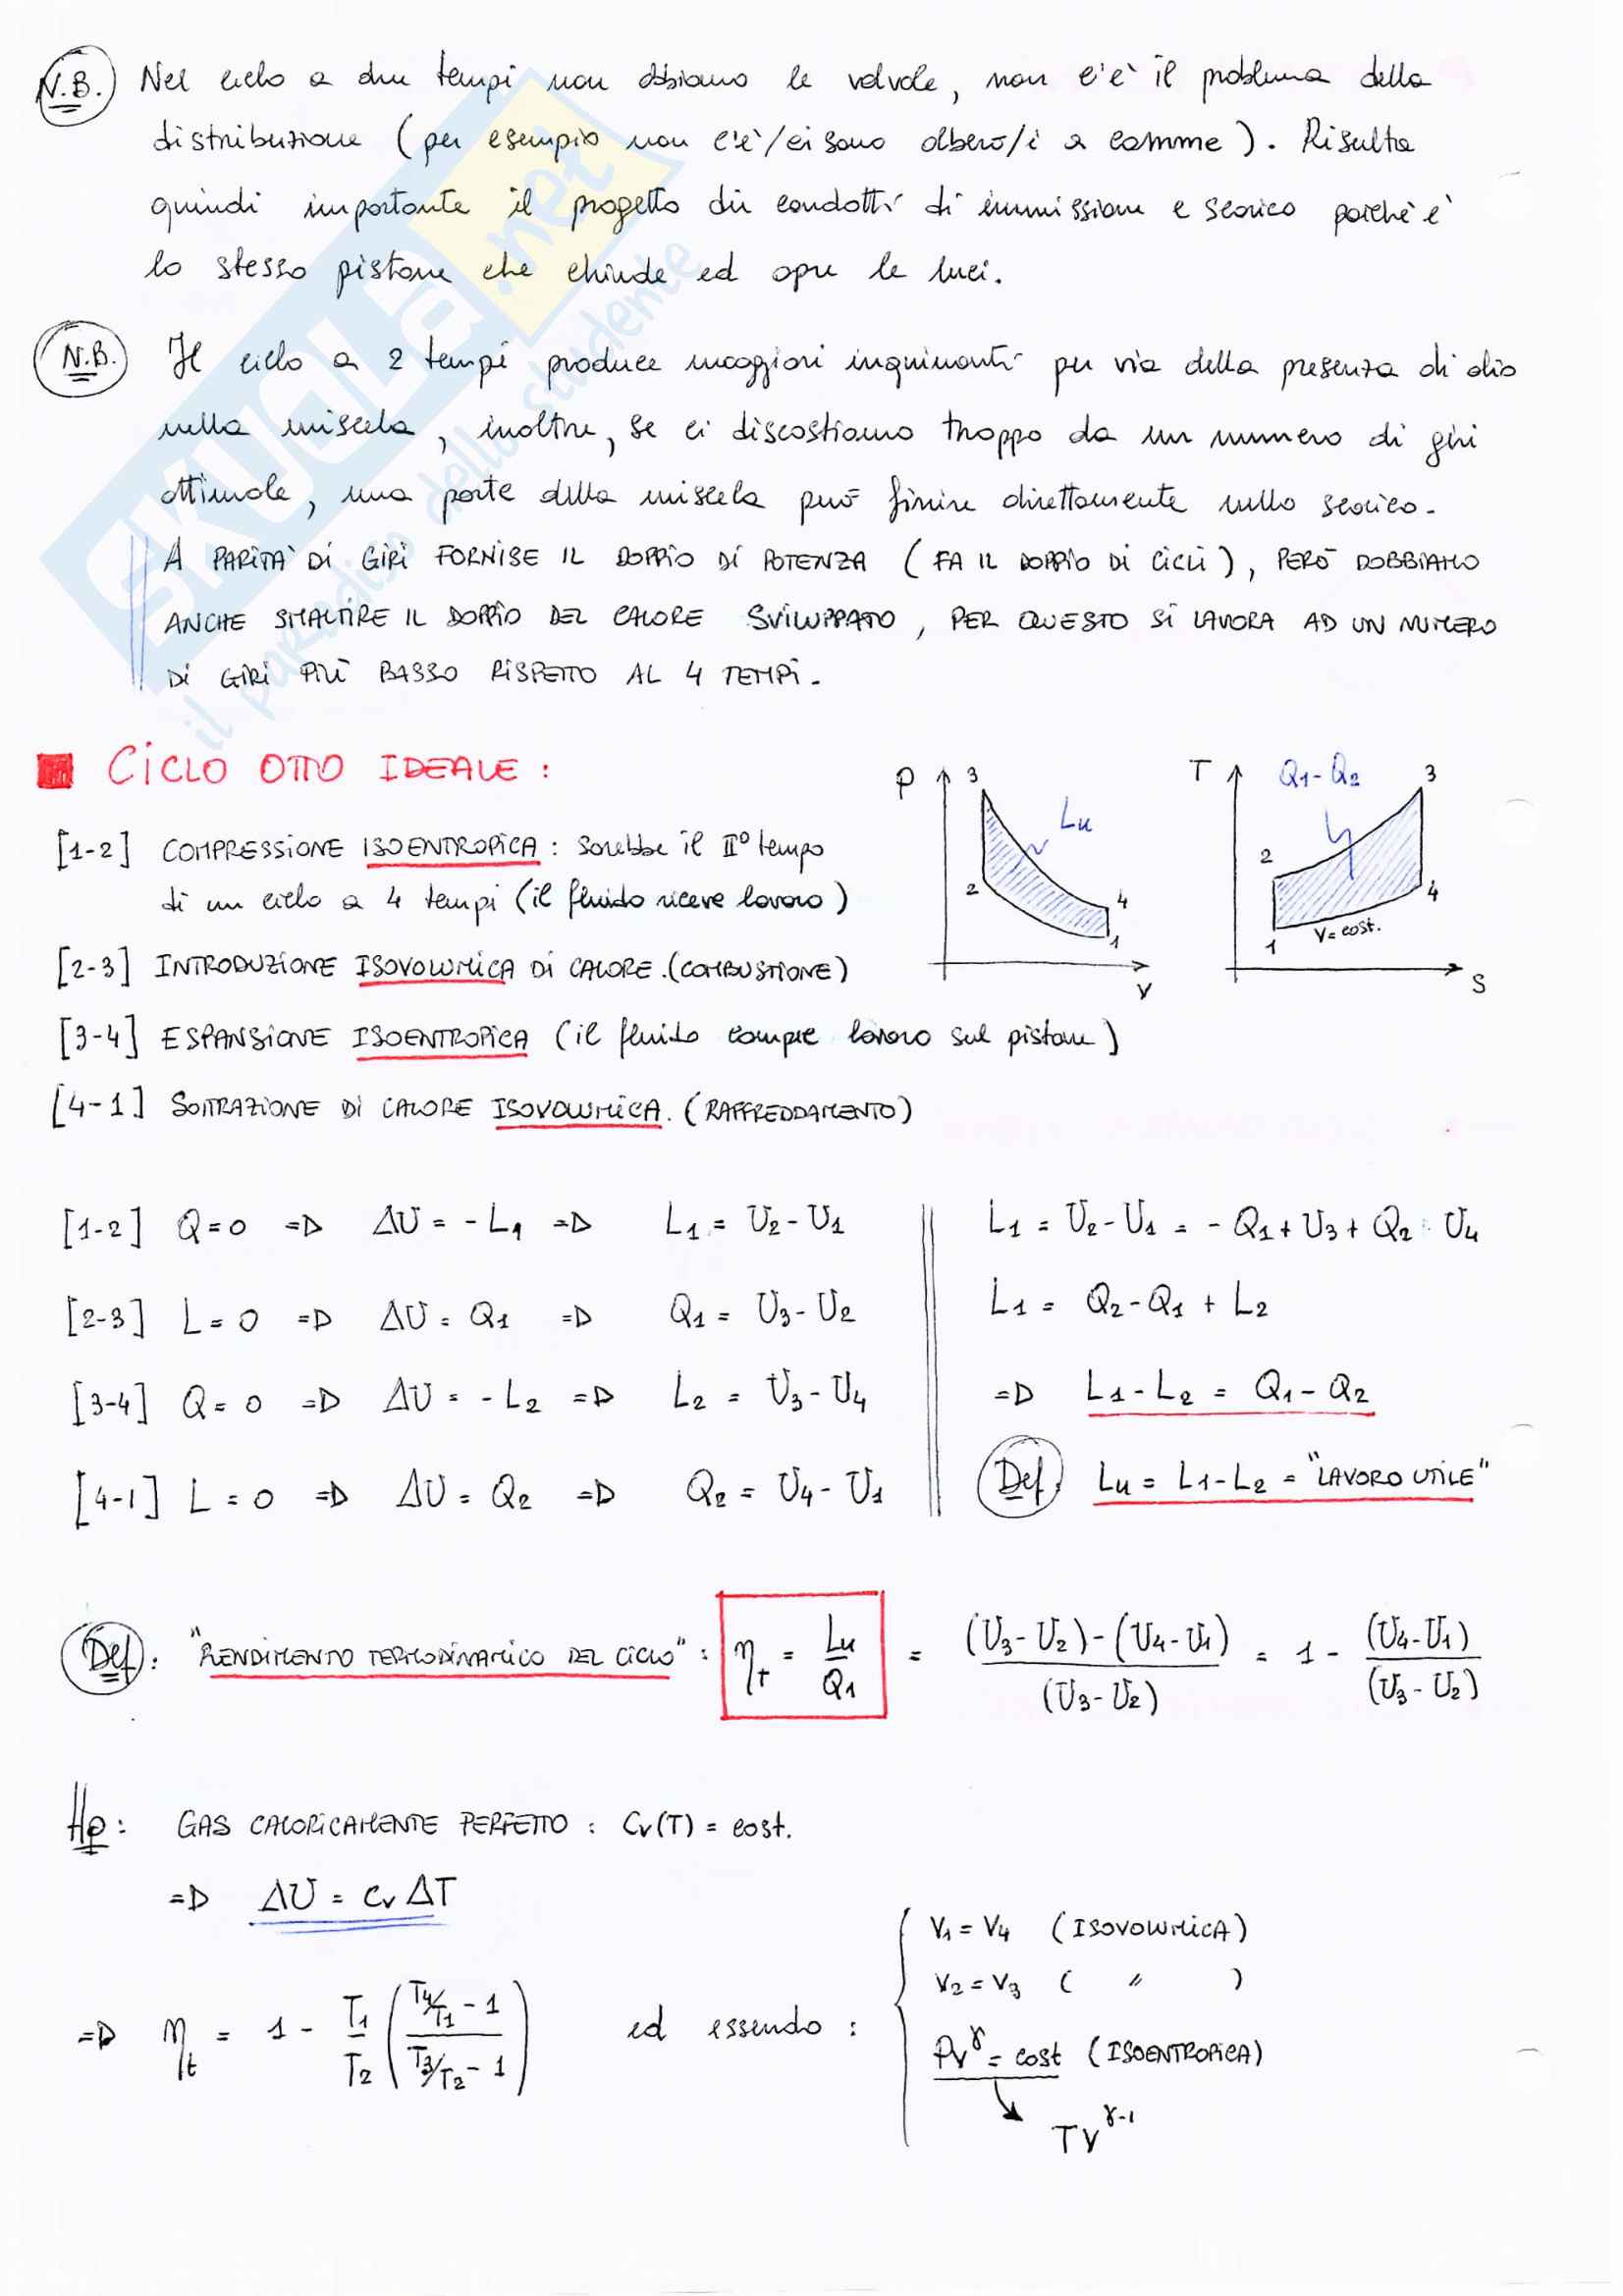 N.B. Nel ciclo a due tempi non abbiamo le valvole, non c'è il problema della
distribuzione (per esempio non c'è/ci sono albero/i a camme). Risulta
quindi importante il progetto dei condotti di immissione e scarico poichè è
lo stesso pistone che chiude ed apre le luci.
N.B. Il ciclo a 2 tempi produce maggiori inquinanti per via della presenza di olio
nella miscela, inoltre, se ci discostiamo troppo da un numero di giri
ottimale, una parte della miscela può finire direttamente nello scarico.
A PARITÀ DI GIRI FORNISE IL DOPPIO DI POTENZA (FA IL DOPPIO DI CICLI), PERÒ DOBBIAMO
ANCHE SMALTIRE IL DOPPIO DEL CALORE SVILUPPATO, PER QUESTO SI LAVORA AD UN NUMERO
DI GIRI PIÙ BASSO RISPETTO AL 4 TEMPI.
SKUOLA.net
il paradiso dello studente
CICLO OTTO IDEALE:
P 3 2 4 1 Lu V
T Q1-Q2 3 2 4 1 V=cost. S
[1-2] COMPRESSIONE ISOENTROPICA: sarebbe il II° tempo
di un ciclo a 4 tempi (il fluido riceve lavoro)
[2-3] INTRODUZIONE ISOVOLUMICA DI CALORE.(COMBUSTIONE)
[3-4] ESPANSIONE ISOENTROPICA (il fluido compie lavoro sul pistone)
[4-1] SOTTRAZIONE DI CALORE ISOVOLUMICA. (RAFFREDDAMENTO)
[1-2] Q=0 => ΔU = -L1 => L1 = U2-U1
[2-3] L=0 => ΔU = Q1 => Q1 = U3-U2
[3-4] Q=0 => ΔU = -L2 => L2 = U3-U4
[4-1] L=0 => ΔU = Q2 => Q2 = U4-U1
L1 = U2-U1 = -Q1+U3+Q2 U4
L1 = Q2-Q1 + L2
=> L1-L2 = Q1-Q2
Def. Lu = L1-L2 = "LAVORO UTILE"
Def: "RENDIMENTO TERMODINAMICO DEL CICLO": ηt = Lu/Q1 = (U3-U2)-(U4-U1)/(U3-U2) = 1 - (U4-U1)/(U3-U2)
Hp: GAS CALORICAMENTE PERFETTO: Cv(T) = cost.
=> ΔU = Cv ΔT
=> ηt = 1 - T1/T2 (T4/T1 - 1 / T3/T2 - 1) ed essendo:
V1=V4 (ISOVOLUMICA)
V2=V3 ( " )
PV^γ = cost (ISOENTROPICA)
TV^γ-1